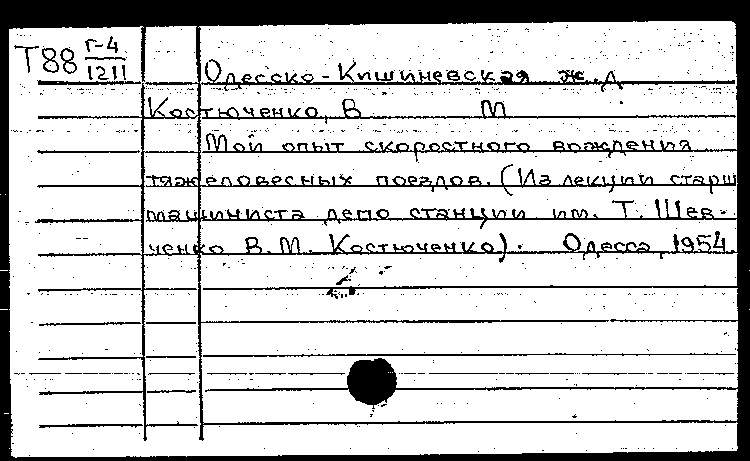 Т88 Г-4/1211
Одесско-Кишиневская ж.д
Костюченко, В М
Мой опыт скоростного вождения
тяжеловесных поездов. (Из лекции старш
машиниста депо станции им. Т. Шев-
ченко В.М. Костюченко). Одесса, 1954.